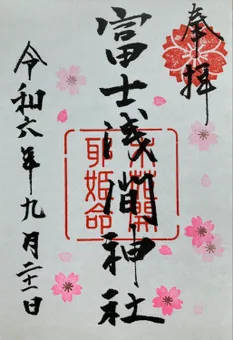 奉拝
富士浅間神社
木花開
耶姫命
令和六年九月二十二日